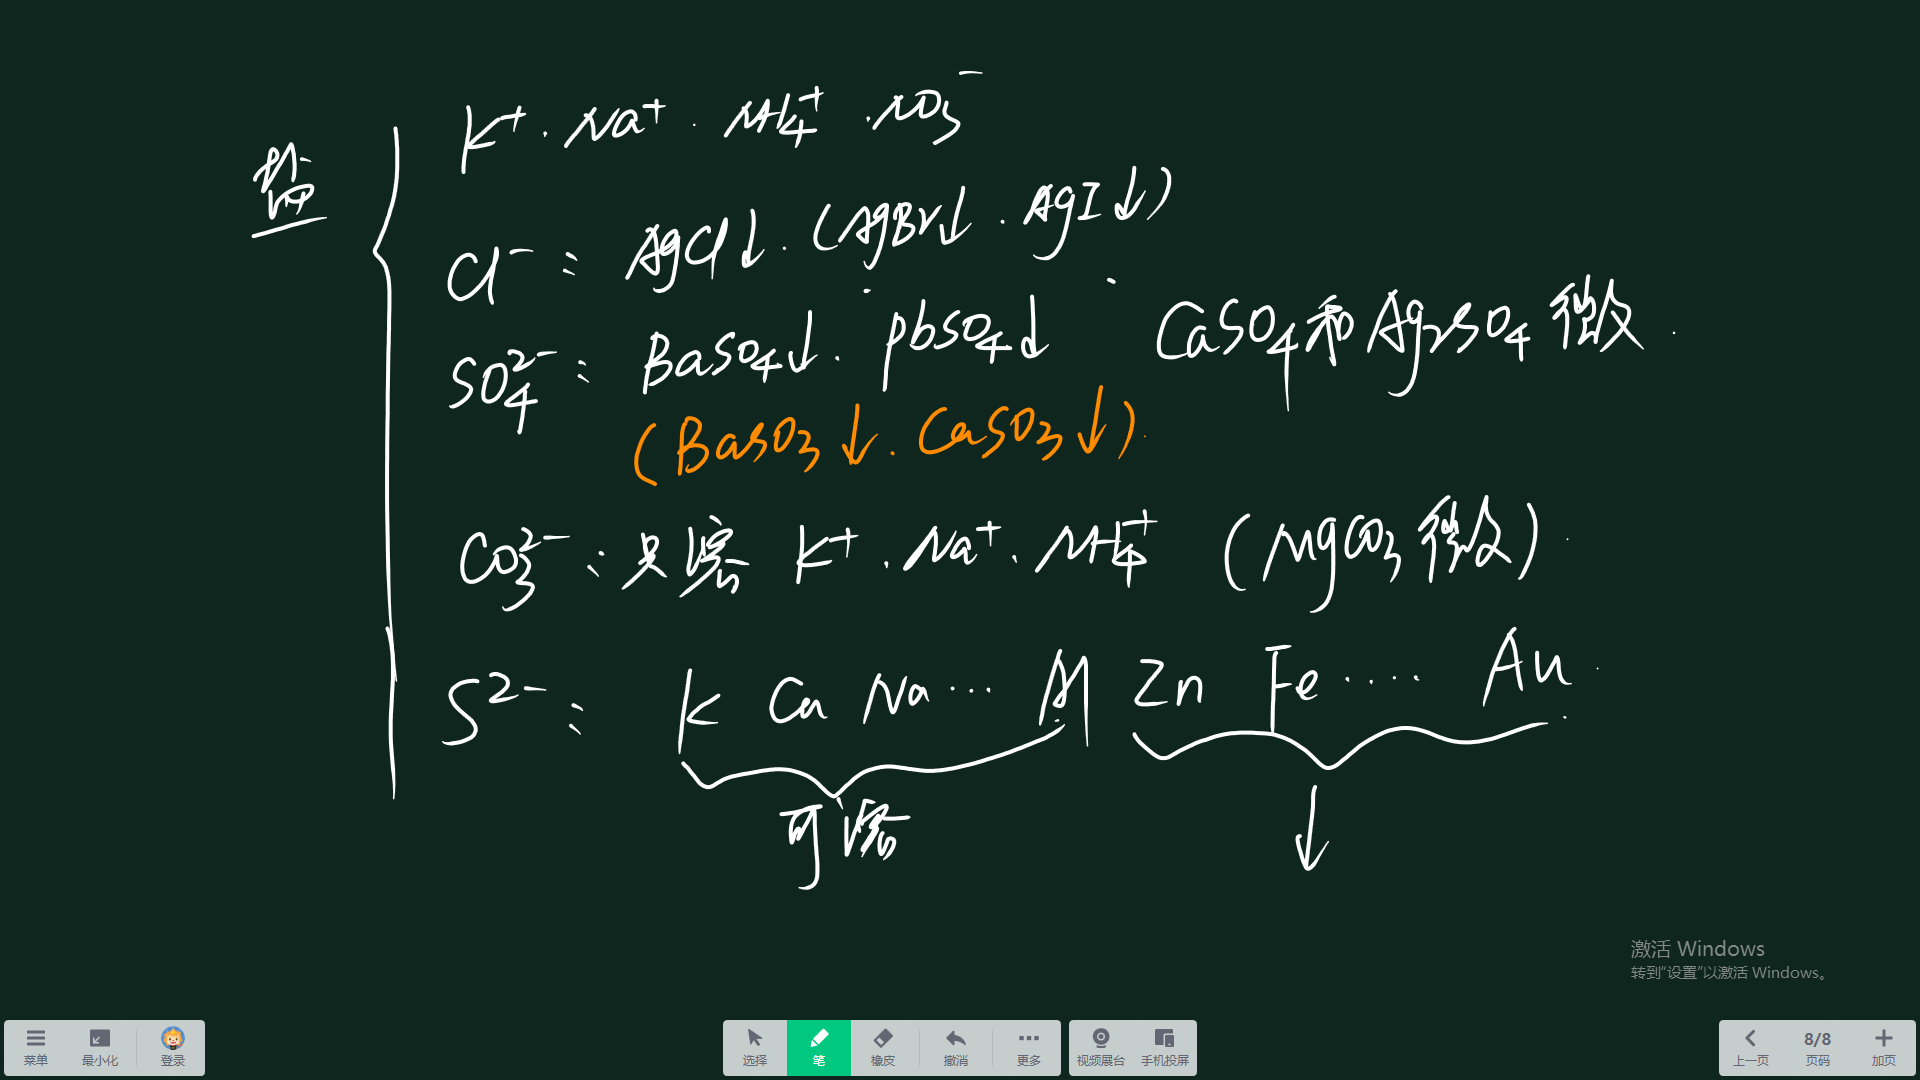 盐
K⁺·Na⁺·NH₄⁺·NO₃⁻
Cl⁻：AgCl↓·(AgBr↓·AgI↓)
SO₄²⁻：BaSO₄↓·PbSO₄↓ CaSO₄和Ag₂SO₄微溶
(BaSO₃↓·CaSO₃↓)
CO₃²⁻：只溶 K⁺·Na⁺·NH₄⁺ (MgCO₃微溶)
S²⁻：K Ca Na … Al Zn Fe ···· Au
可溶 ↓
激活 Windows
转到“设置”以激活 Windows。
菜单 最小化 登录 选择 笔 橡皮 撤消 更多 视频展台 手机投屏 上一页 8/8 页码 加页